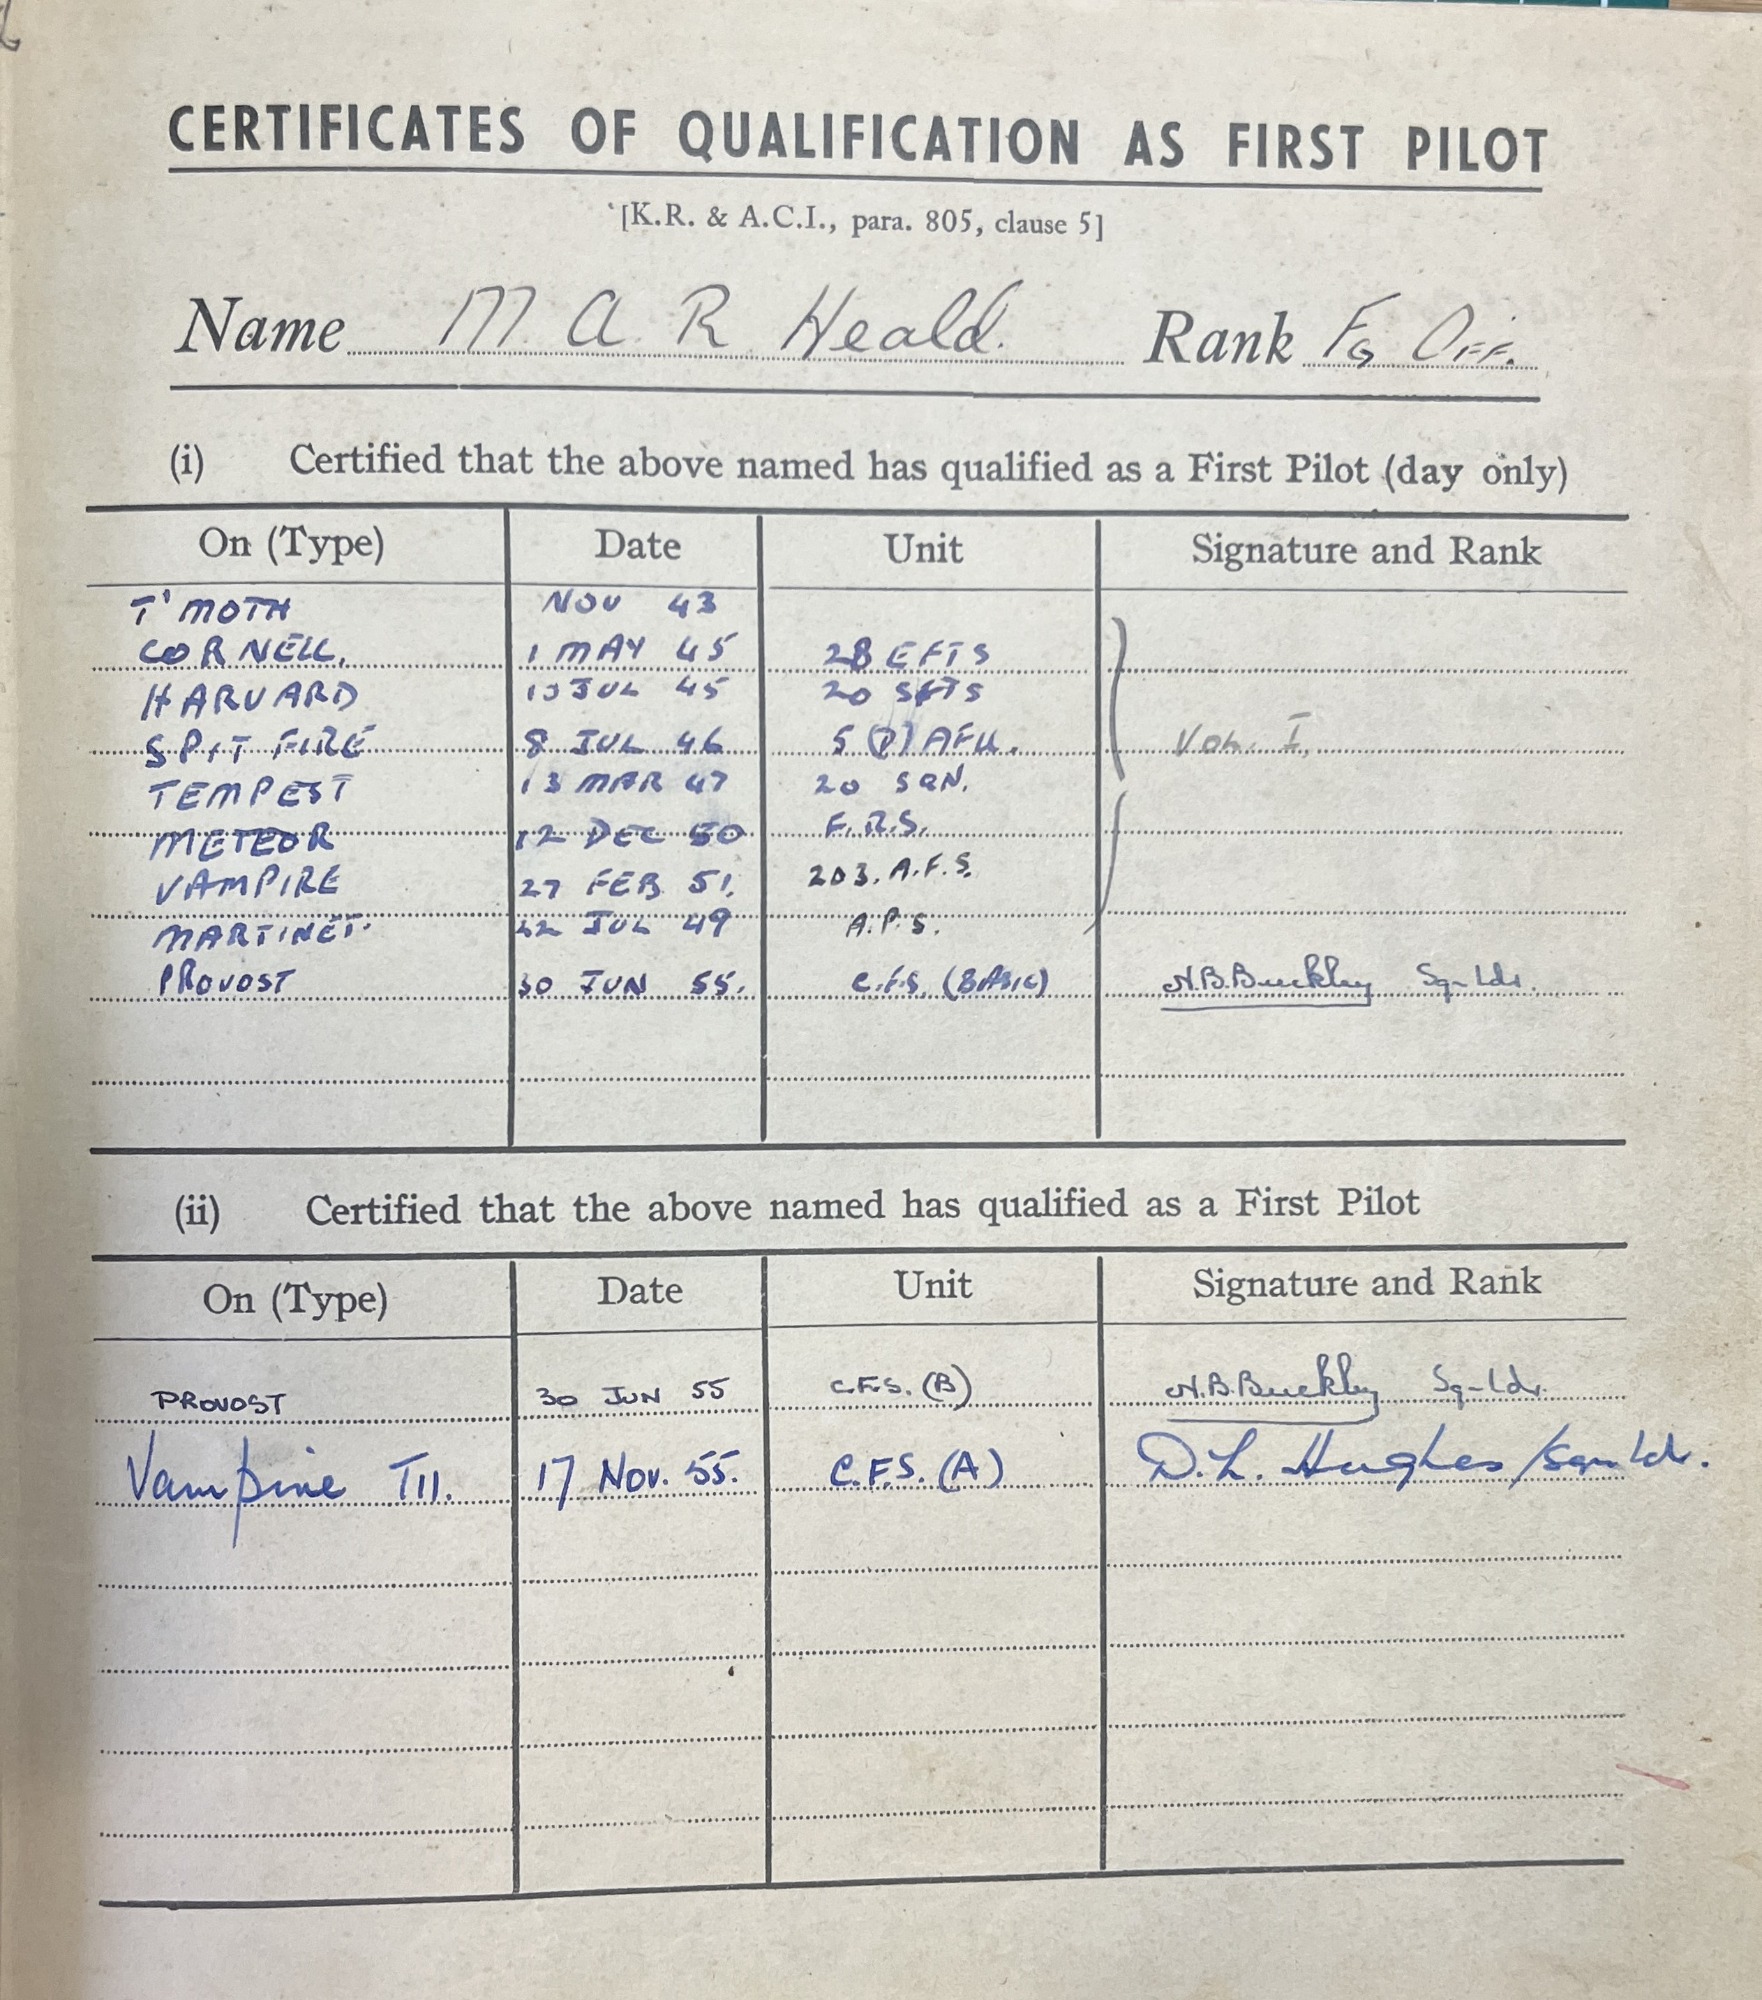 CERTIFICATES OF QUALIFICATION AS FIRST PILOT
[K.R. & A.C.I., para. 805, clause 5]
Name M. A. R Heald. Rank FG OFF.
(i) Certified that the above named has qualified as a First Pilot (day only)
On (Type) Date Unit Signature and Rank
T'MOTH NOV 43
CORNELL. 1 MAY 45 28 EFTS
HARVARD JUL 45 20 SFTS
SPITFIRE 8 JUL 46 5 (P) AFU. Vol. I.
TEMPEST 13 MAR 47 20 SQN.
METEOR 12 DEC 50 F.R.S.
VAMPIRE 27 FEB 51. 203. A.F.S.
MARTINET. 22 JUL 49 A.P.S.
PROVOST 30 JUN 55. C.F.S. (BASIC) A.B. Buckley Sqn Ldr.
(ii) Certified that the above named has qualified as a First Pilot
On (Type) Date Unit Signature and Rank
PROVOST 30 JUN 55 C.F.S. (B) A.B. Buckley Sqn Ldr.
Vampire T11. 17 Nov. 55. C.F.S. (A) D.L. Hughes/Sqn Ldr.